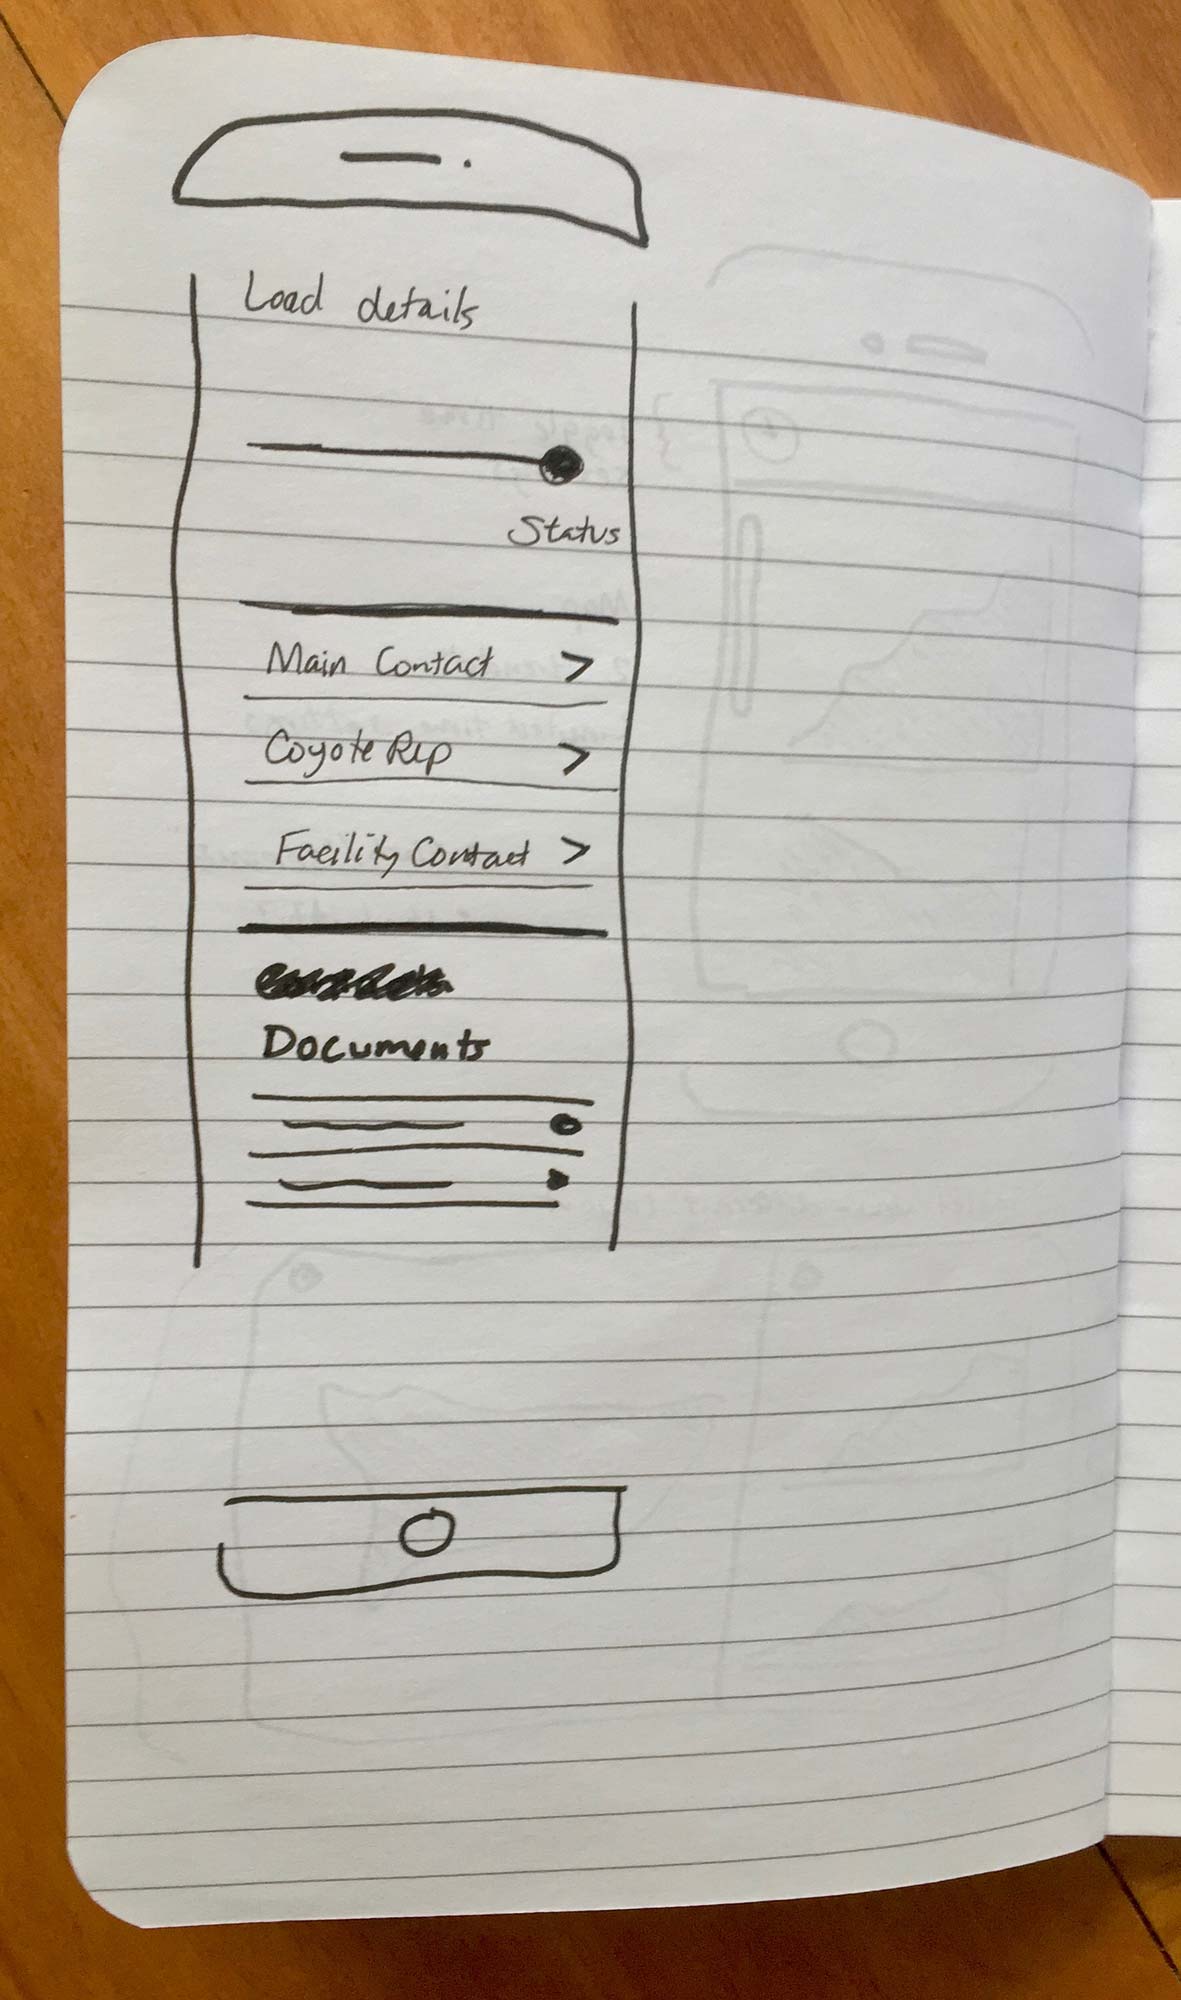 Load details
Status
Main Contact >
Coyote Rep >
Facility Contact >
Documents